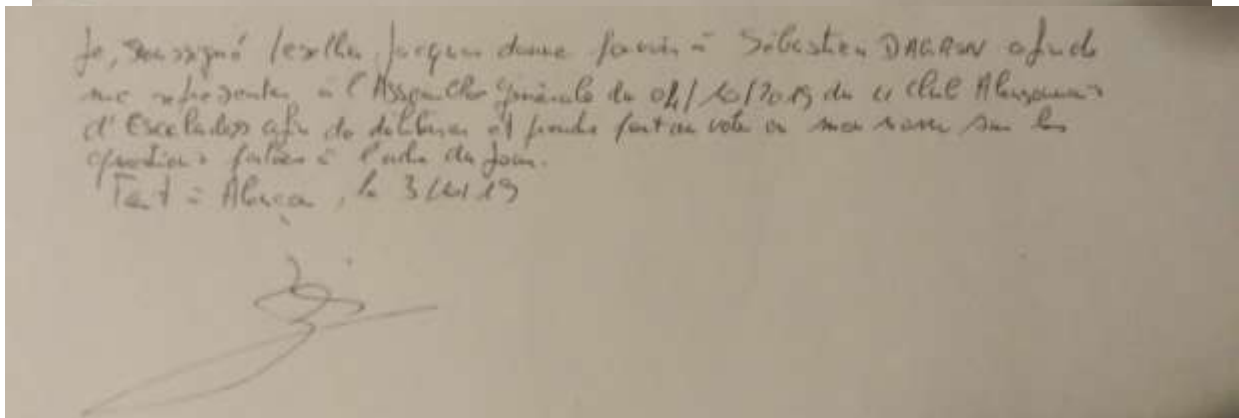 Je, soussigné Jacques donne pouvoir à Sébastien DAGRON afin de
me représenter à l'Assemblée générale du 04/10/2019 du Club Alençonnais
d'Escalades afin de délibérer et prendre part au vote en mon nom sur les
questions portées à l'ordre du jour.
Fait à Alençon, le 3/10/19